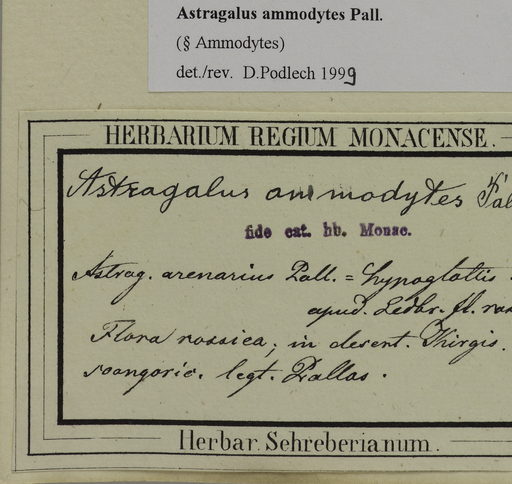 Astragalus ammodytes Pall.
(§ Ammodytes)
det./rev. D.Podlech 1999
HERBARIUM REGIUM MONACENSE.
Astragalus ammodytes Pal
fide cat. hb. Monac.
Astrag. arenarius Pall. = hypoglottis
apud. Ledbr. fl. ross
Flora rossica, in desert. Khirgis.
soongoric. legt. Pallas.
Herbar. Schreberianum.